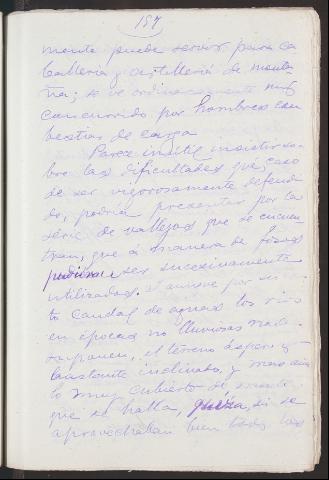 157
mente puede servir para ca
ballería y artillería de monta
ña; se ve ordinariamente muy
concurrido por hombres con
bestias de carga
Parece inútil insistir so
bre las dificultades que, caso
de ser vigorosamente defendi
do, podría presentar por la
serie de vallejos que se encuen
tran, que á manera de fosos
pudiera ser sucesivamente
utilizados. Y aunque por su
to caudal de aguas los rios
en épocas no lluviosas nada
supone, el terreno áspero y
bastante inclinado, y mas aún
lo muy cubierto de monte
que se halla, quizá, si se
aprovechaban bien todos los